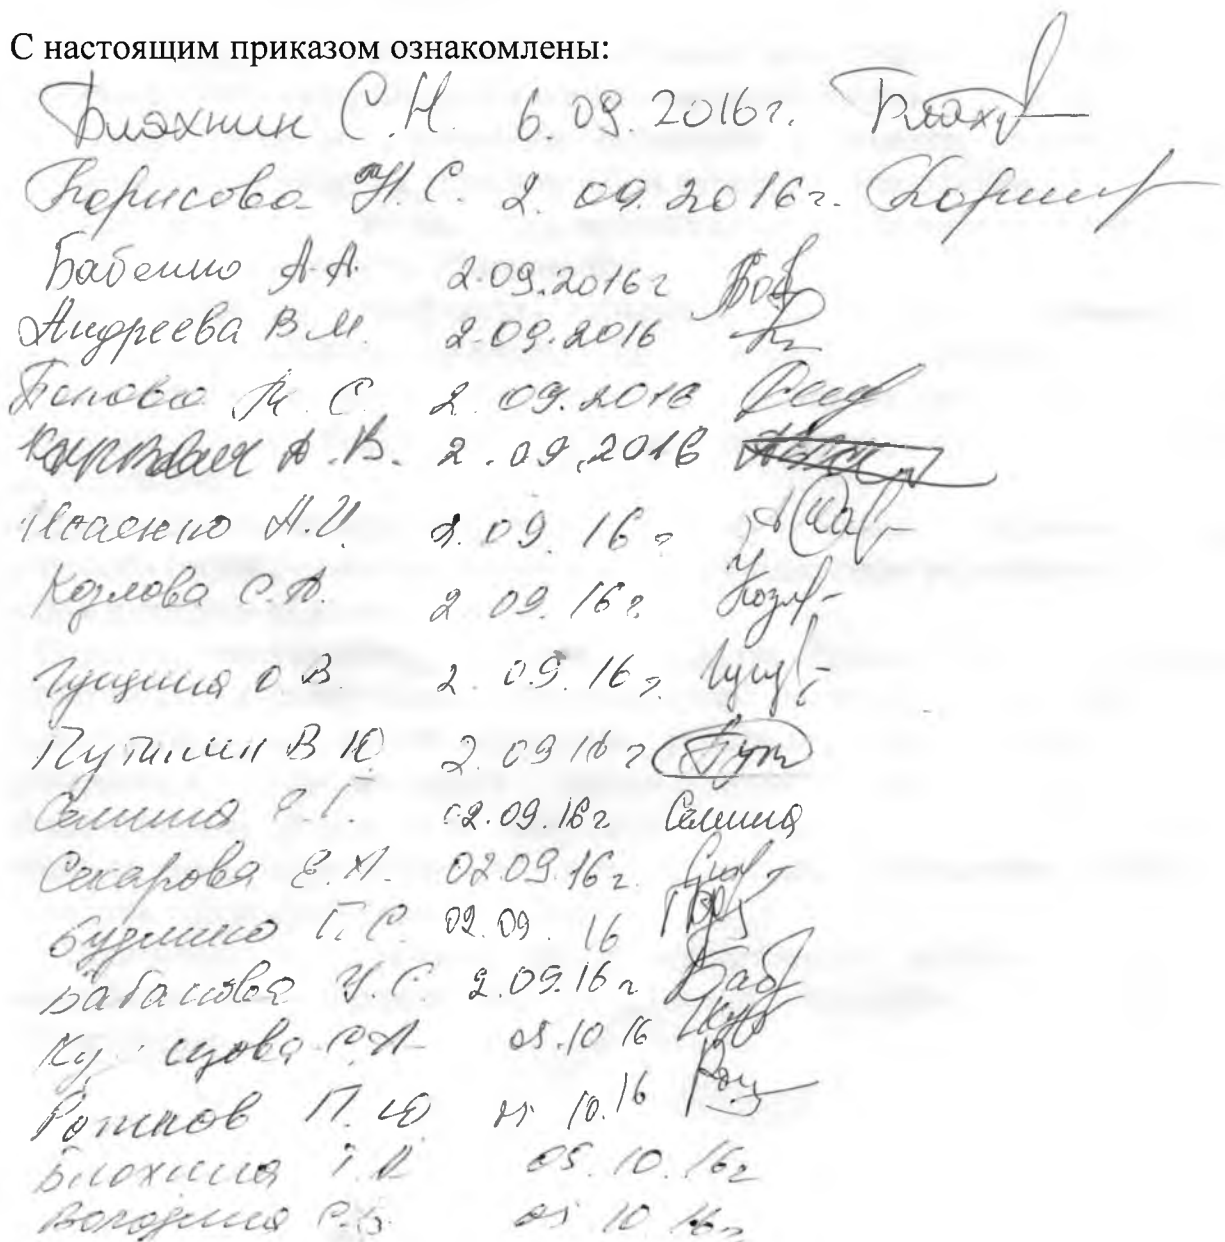 С настоящим приказом ознакомлены:
Блохнин С.Н. 6.09.2016г. Блох
Борисова Н.С. 2.09.2016г.
Бабенко А.А. 2.09.2016г
Андреева В.М. 2.09.2016
Попова М.С. 2.09.2016
А.В. 2.09.2016
Исаенко А.И. 2.09.16г
Козлова С.А. 2.09.16г. Козл
Гущина О.В. 2.09.16г. Гущ
Путилин В Ю 2.09 16г Пут
Семина 02.09.16г. Семина
Сахарова Е.А. 02.09.16г.
Г.С. 02.09.16
Бабанова Н.С. 2.09.16г Баб
05.10.16
Рожнов П.Ю 05 10.16 Рож
Блохнина 05.10.16г
Володина С.В. 05 10 16г